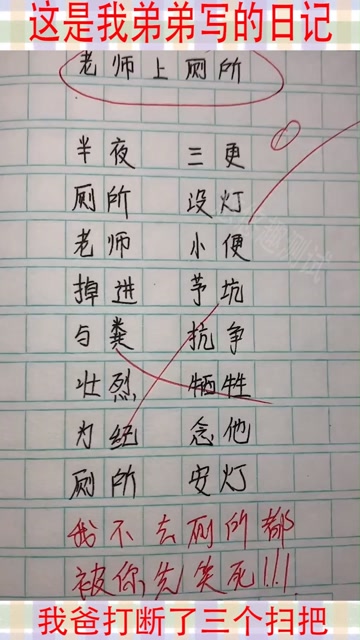 这是我弟弟写的日记
老师上厕所
半夜 三更
厕所 没灯
老师 小便
掉进 茅坑
与粪 抗争
壮烈 牺牲
为纪 念他
厕所 安灯
我不去厕所都
被你先笑死!!!
我爸打断了三个扫把